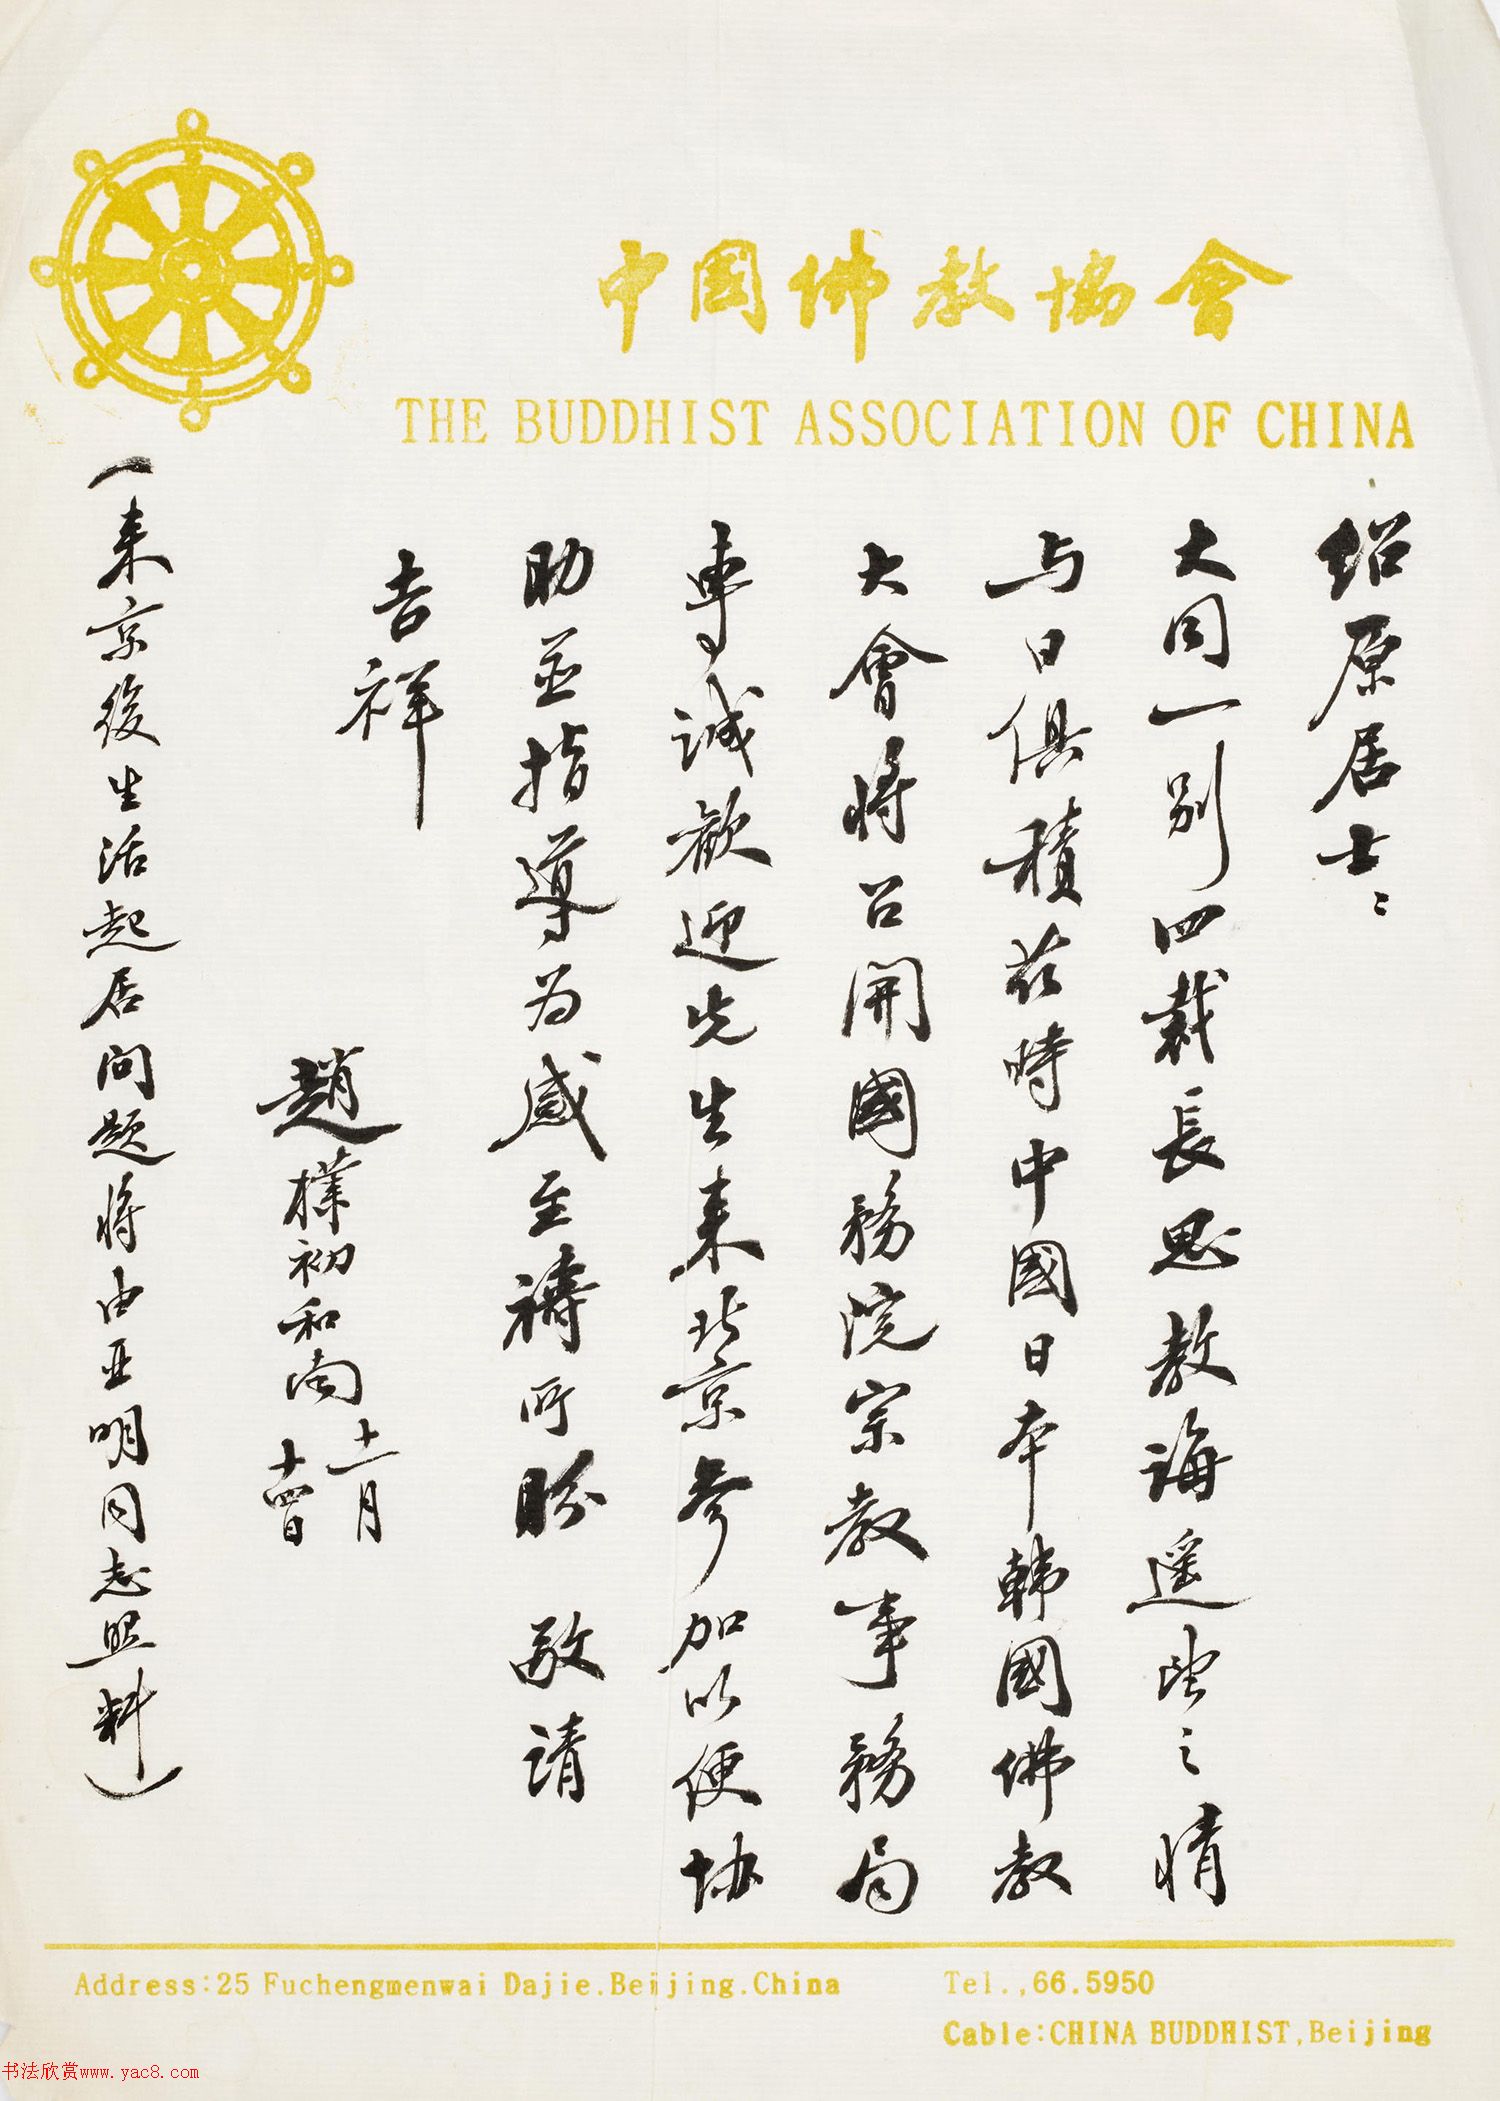 中国佛教協會
THE BUDDHIST ASSOCIATION OF CHINA
绍原居士：
大同一别四载長思教诲遥望之情
与日俱積兹時中國日本韩國佛教
大會将召開國務院宗教事務局
専诚歡迎先生来北京参加以便协
助並指導为感至禱所盼 敬请
吉祥
趙樸初和南
十一月
十四日
（来京後生活起居问题将由亚明同志照料）
Address:25 Fuchengmenwai Dajie.Beijing.China
Tel.,66.5950
Cable:CHINA BUDDHIST,Beijing
书法欣赏www.yac8.com